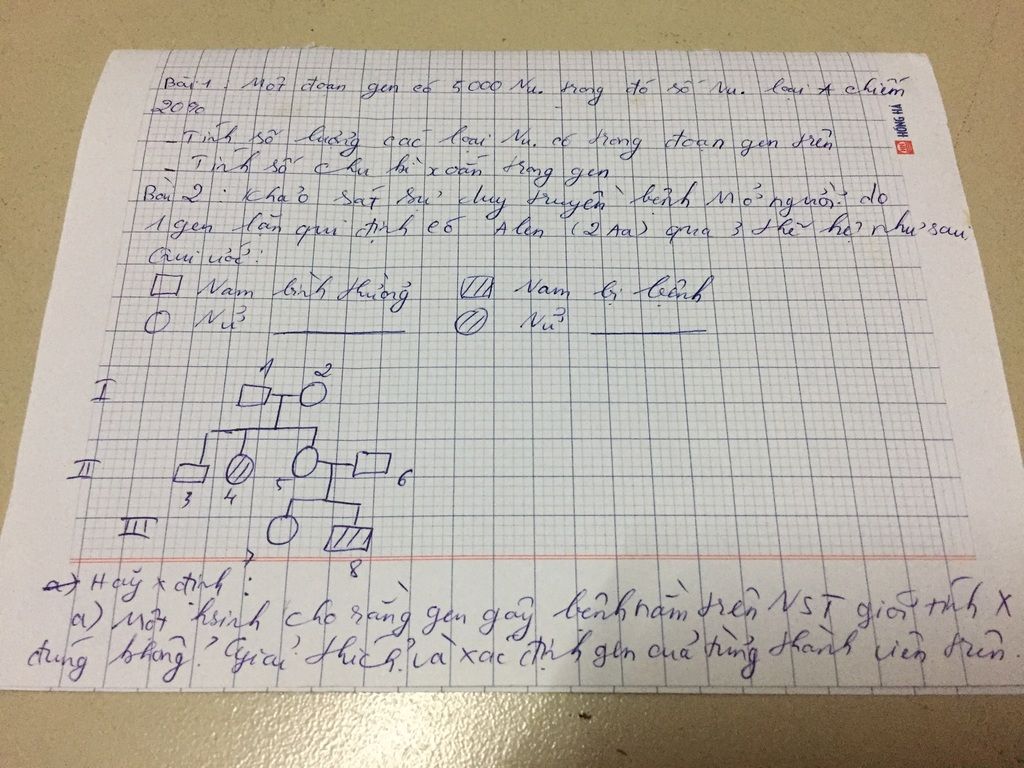 Bài 1. Một đoạn gen có 5000 Nu. trong đó số Nu. loại A chiếm
20%
- Tính số lượng các loại Nu. có trong đoạn gen trên
- Tính số chu kì xoắn trong gen
HỒNG HÀ
Bài 2: Khảo sát sự duy truyền bệnh M ở người do
1 gen lặn qui định có Alen (2 Aa) qua 3 thế hệ như sau
Qui ước:
Nam bình thường Nam bị bệnh
Nữ Nữ
1 2
I
II
3 4 5 6
III
7 8
a) Hãy x định:
a) Một hsinh cho rằng gen gây bệnh nằm trên NST giới tính X
đúng không? Giải thích? và xác định gen của từng thành viên trên.